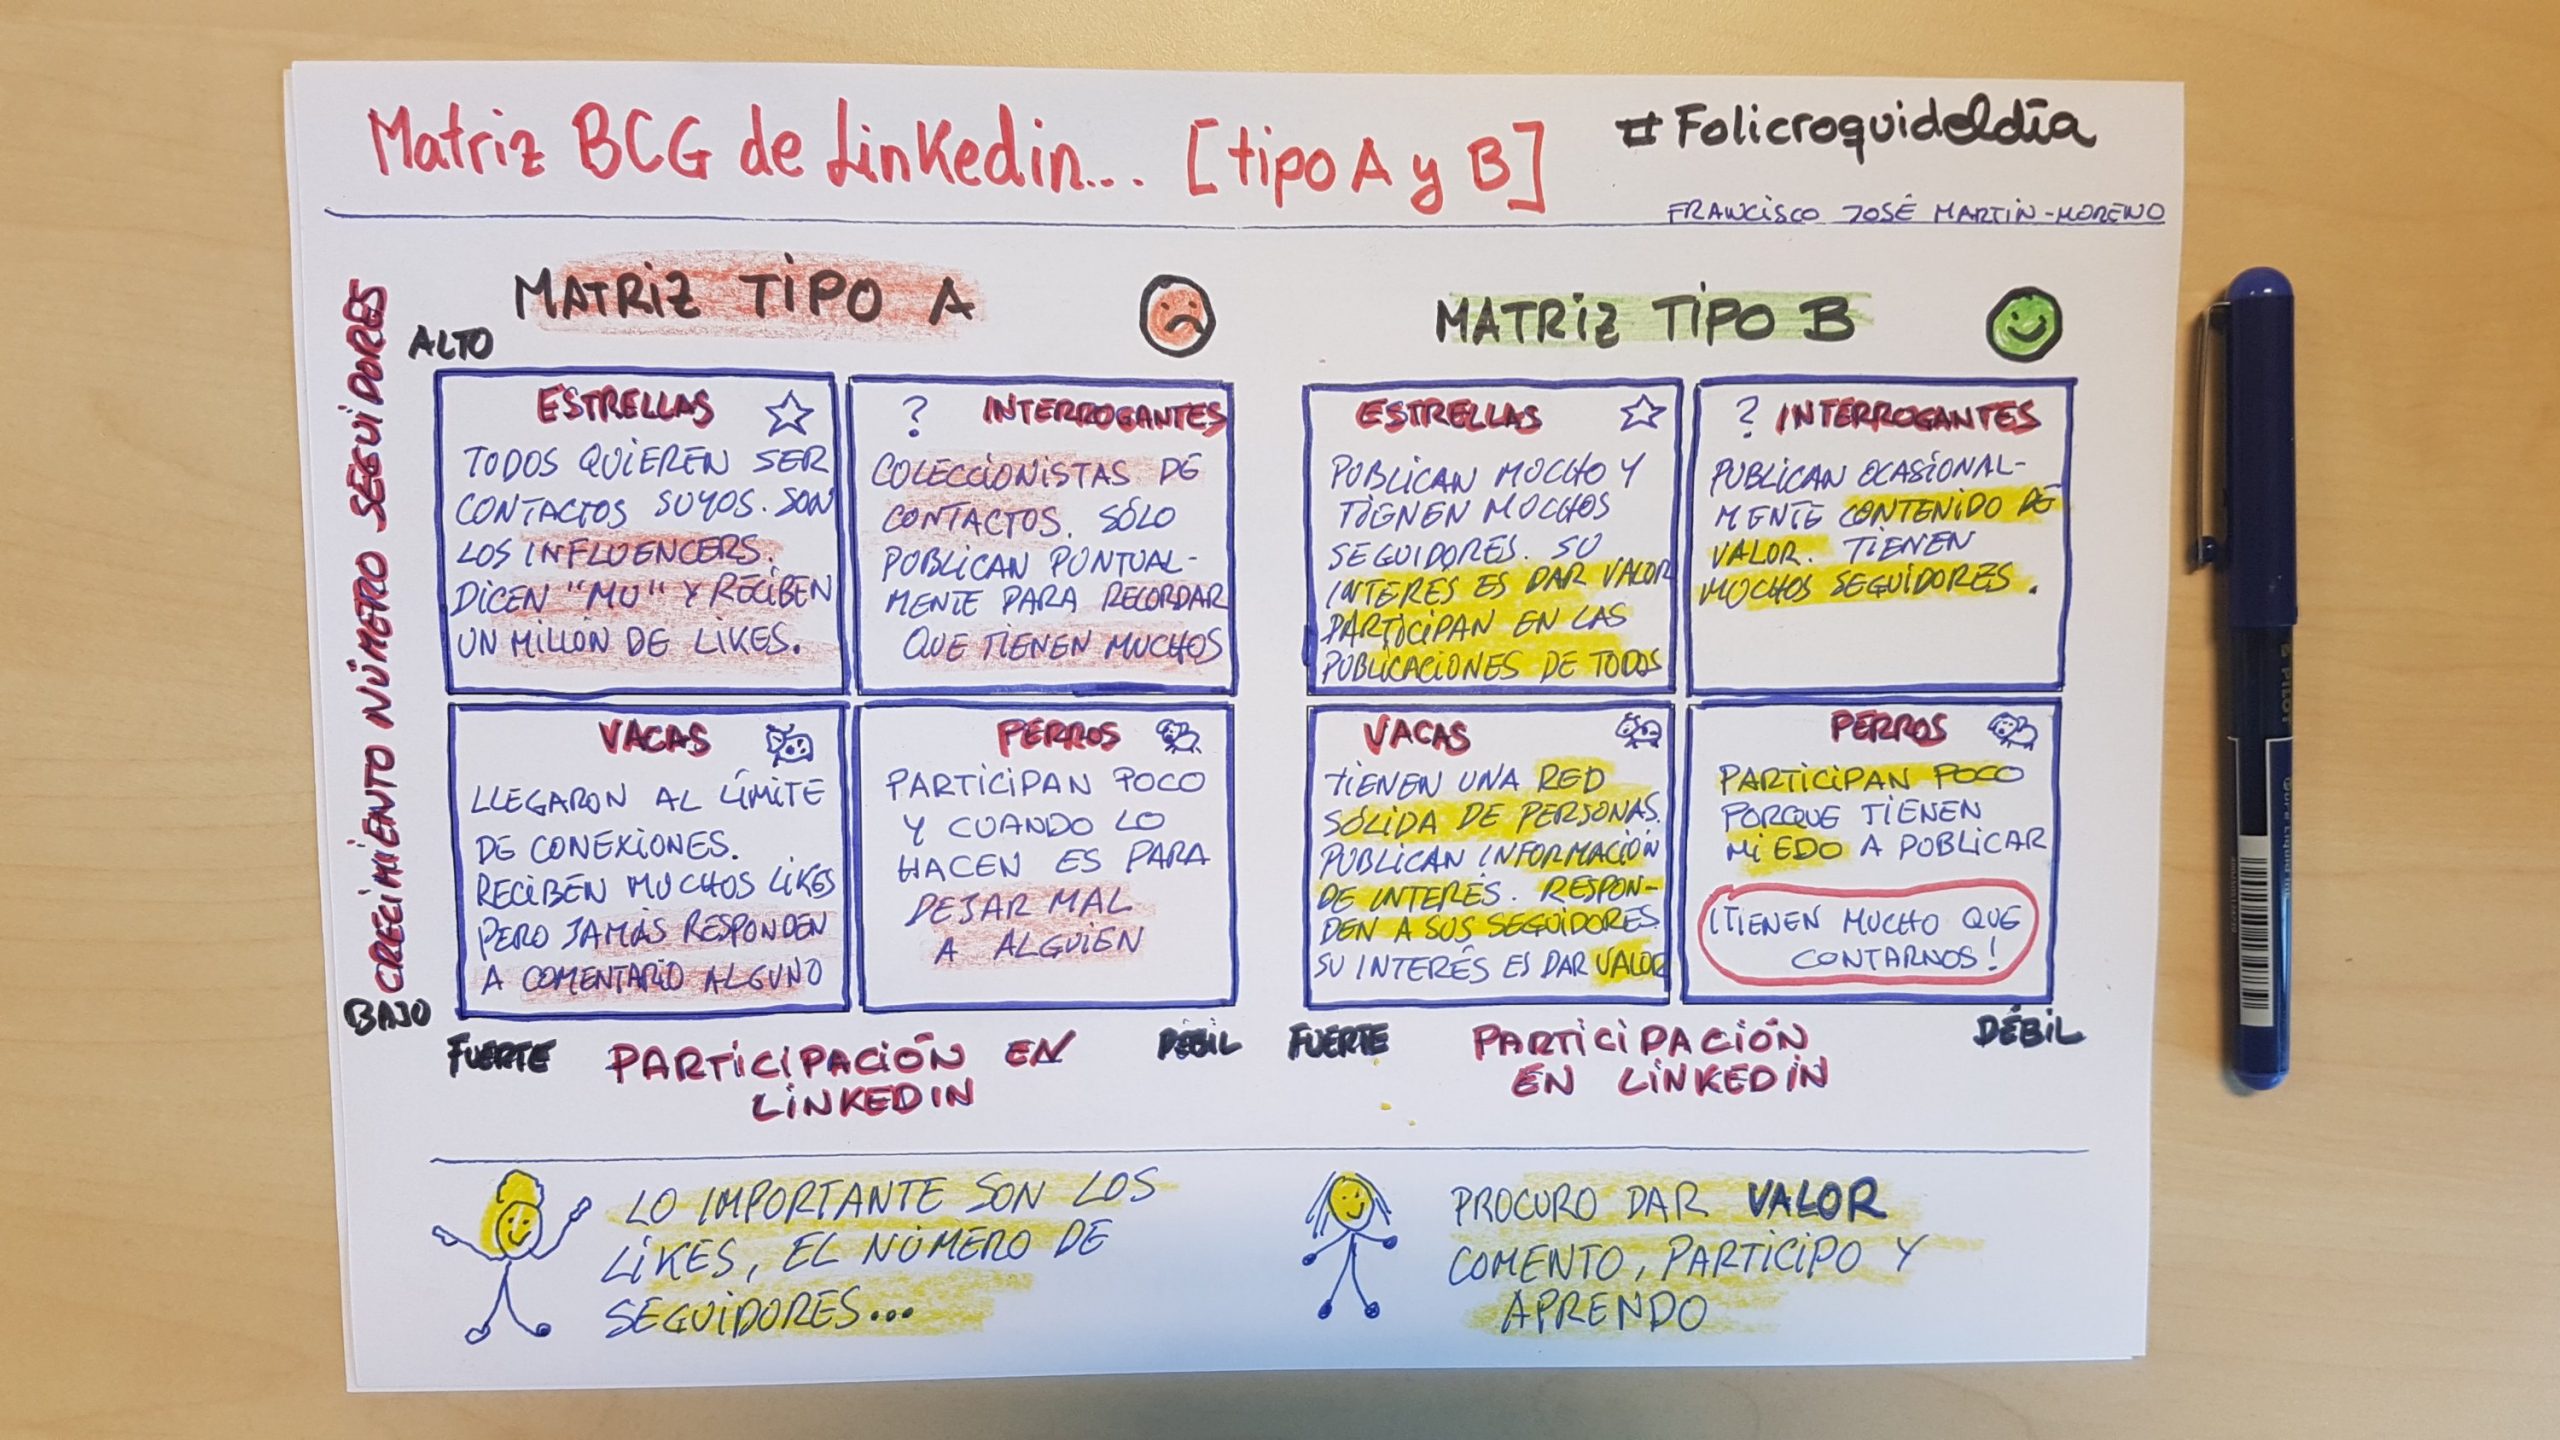 Matriz BCG de Linkedin... [tipo A y B]
#Folicroquideldía
FRANCISCO JOSÉ MARTÍN-MORENO
CRECIMIENTO NÚMERO SEGUIDORES
ALTO
BAJO
MATRIZ TIPO A
ESTRELLAS
TODOS QUIEREN SER
CONTACTOS SUYOS. SON
LOS INFLUENCERS.
DICEN "MU" Y RECIBEN
UN MILLÓN DE LIKES.
? INTERROGANTES
COLECCIONISTAS DE
CONTACTOS. SÓLO
PUBLICAN PUNTUAL-
MENTE PARA RECORDAR
QUE TIENEN MUCHOS
VACAS
LLEGARON AL LÍMITE
DE CONEXIONES.
RECIBEN MUCHOS LIKES
PERO JAMÁS RESPONDEN
A COMENTARIO ALGUNO
PERROS
PARTICIPAN POCO
Y CUANDO LO
HACEN ES PARA
DEJAR MAL
A ALGUIEN
FUERTE
PARTICIPACIÓN EN
LINKEDIN
DÉBIL
MATRIZ TIPO B
ESTRELLAS
PUBLICAN MUCHO Y
TIENEN MUCHOS
SEGUIDORES. SU
INTERÉS ES DAR VALOR
PARTICIPAN EN LAS
PUBLICACIONES DE TODOS
? INTERROGANTES
PUBLICAN OCASIONAL-
MENTE CONTENIDO DE
VALOR. TIENEN
MUCHOS SEGUIDORES.
VACAS
TIENEN UNA RED
SÓLIDA DE PERSONAS.
PUBLICAN INFORMACIÓN
DE INTERÉS. RESPON-
DEN A SUS SEGUIDORES
SU INTERÉS ES DAR VALOR
PERROS
PARTICIPAN POCO
PORQUE TIENEN
MIEDO A PUBLICAR
¡TIENEN MUCHO QUE
CONTARNOS!
FUERTE
PARTICIPACIÓN
EN LINKEDIN
DÉBIL
LO IMPORTANTE SON LOS
LIKES, EL NÚMERO DE
SEGUIDORES...
PROCURO DAR VALOR
COMENTO, PARTICIPO Y
APRENDO
PILOT